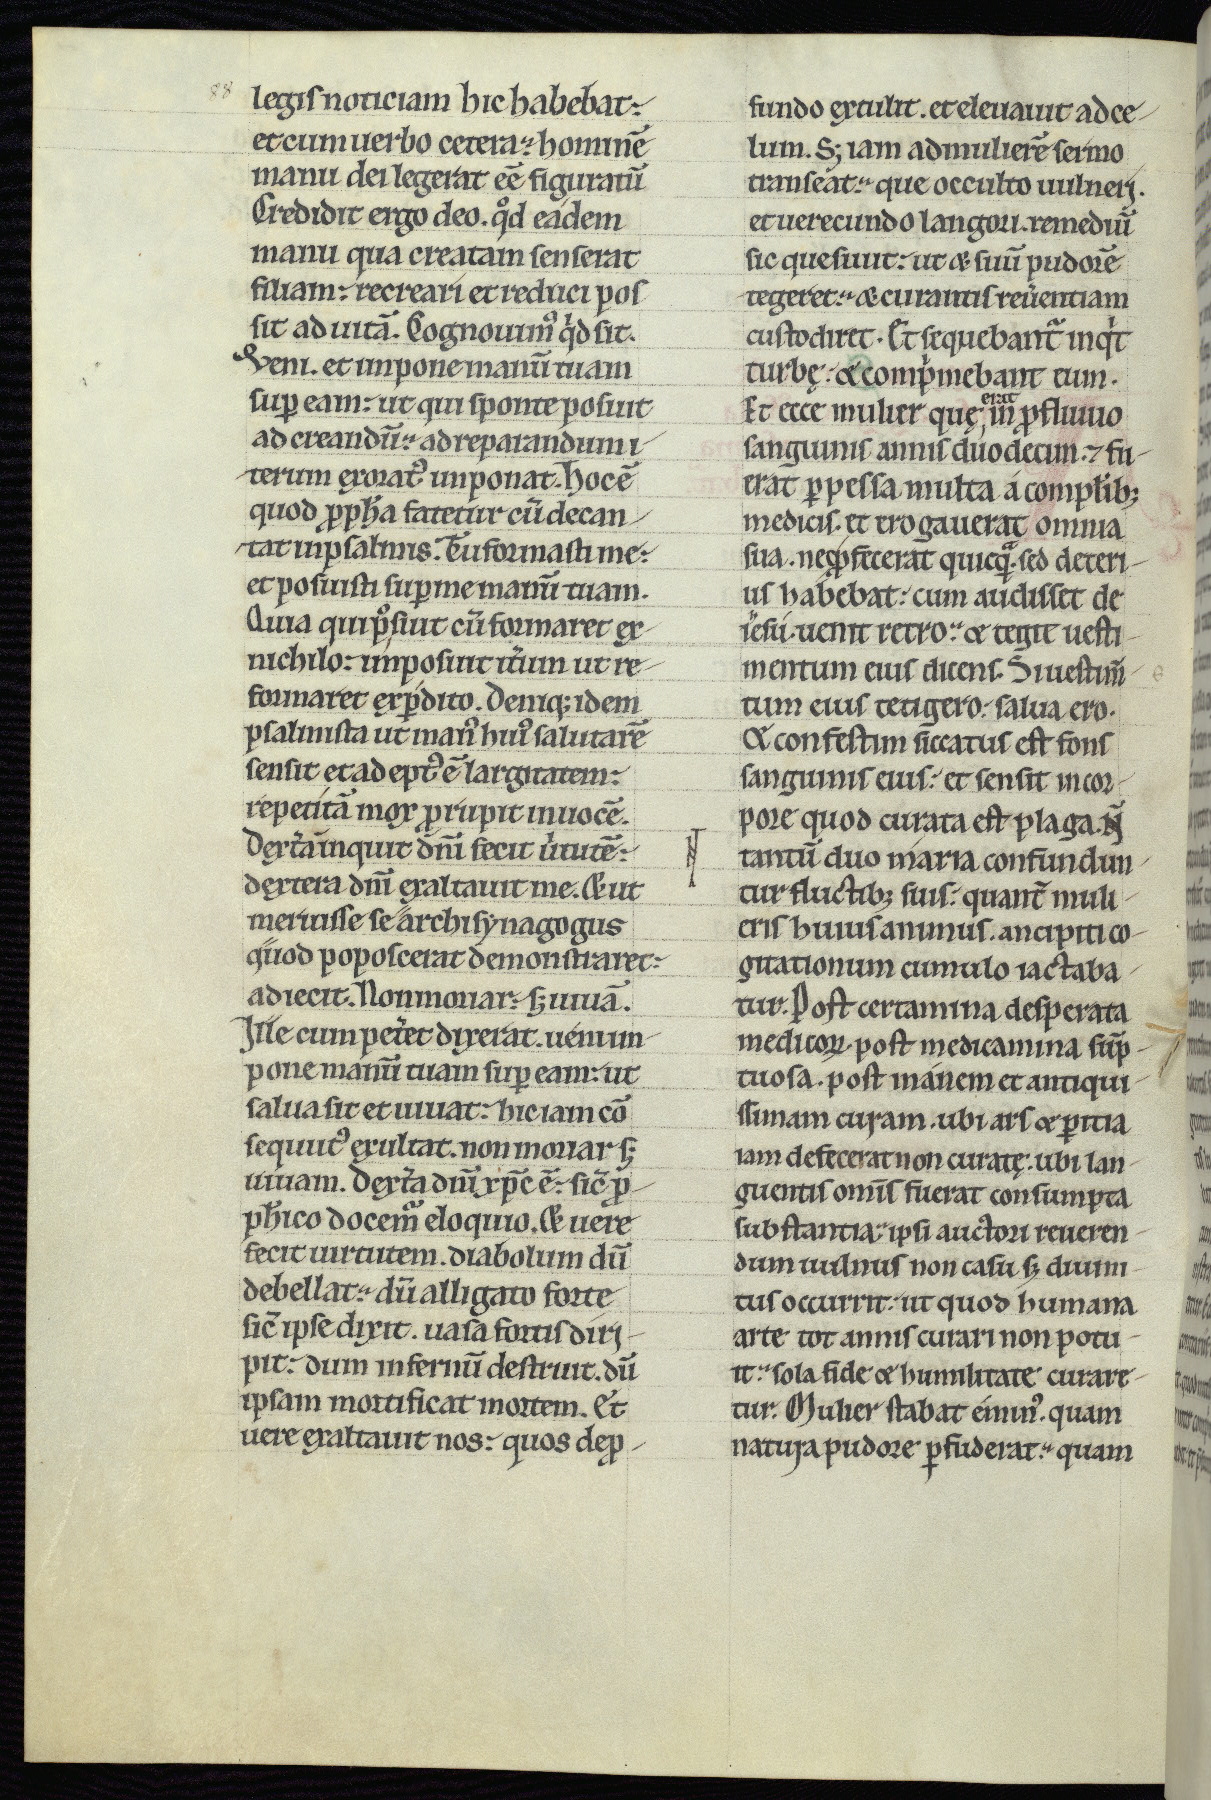 88
legis noticiam hic habebat:
et cum uerbo cetera: hominē
manu dei legerat eē figuratū
Credidit ergo deo. qͦd eadem
manu qua creatam senserat
filiam: recreari et reduci pos
sit ad uitā. Cognouimꝰ qͥd sit.
Veni. et inpone manū tuam
suꝑ eam: ut qui sponte posuit
ad creandū: ad reparandum i
terum exoratꝰ inponat. Hoc ē
quod ꝓph̄a fatetur cū decan
tat in psalmis. Tu formasti me:
et posuisti suꝑ me manū tuam.
Quia qui pͦsuit cū formaret ex
nichilo: inposuit itͤum ut re
formaret ex ꝑdito. Deniq; idem
psalmista ut manꝰ huiꝰ salutarē
sensit et adeptꝰ ē largitatem:
repetitā mox ꝓrupit in uocē.
Dext̄a inquit dn̄i fecit uͥtutē:
dextera dn̄i exaltauit me. & ut
meruisse se archisynagogus
quod poposcerat demonstraret:
adiecit. Non moriar: sꝫ uiuā.
Ille cum pet̄et dixerat. ueni in
pone manū tuam suꝑ eam: ut
salua sit et uiuat: hic iam cō
sequutꝰ exultat. non moriar sꝫ
uiuam. Dext̄a dn̄i xp̄c ē: sic̄ ꝓ
ph̄ico docemᷣ eloquio. & uere
fecit uirtutem. diabolum dū
debellat: dū alligato forte
sic̄ ipse dixit. uasa fortis diri
pit: dum infernū destruit. dū
ipsam mortificat mortem. Et
uere exaltauit nos: quos de ꝓ
fundo extulit. et eleuauit ad ce
lum. Sꝫ iam ad mulierē sermo
transeat: que occulto uulneri.
et uerecundo langori. remediū
sic quesiuit: ut & suū pudorē
tegeret: & curantis reuͤentiam
custodiret. Et sequebantᷣ inqͥt
turbę: & compͥmebant eum.
Et ecce mulier quę erat in ꝓfluuio
sanguinis annis duodecim: ⁊ fu
erat ꝑpessa multa a complͥib;
medicis. et erogauerat omnia
sua. neq; ꝓfecerat quicqͣ. sed deteri
us habebat: cum audisset de
iesu. uenit retro: & tegit uesti
mentum eius dicens. Si uestim̄
tum eius tetigero: salua ero.
& confestim siccatus est fons
sanguinis eius: et sensit in cor
pore quod curata est plaga. N̄
tantū duo maria confundun
tur fluctib; suis: quantᷣ muli
eris huius animus. ancipiti co
gitationum cumulo iactaba
tur. Post certamina desperata
medicoꝝ. post medicamina sūp
tuosa. post inanem et antiqui
ssimam curam. ubi ars & ꝑitia
iam defecerat non curatę. ubi lan
guentis omīs fuerat consumpta
substantia: ipsi auctori reueren
dum uulnus non casu sꝫ diuini
tus occurrit: ut quod humana
arte tot annis curari non potu
it: sola fide & humilitate curare
tur. Mulier stabat eminꝰ. quam
natura pudore ꝑfuderat: quam